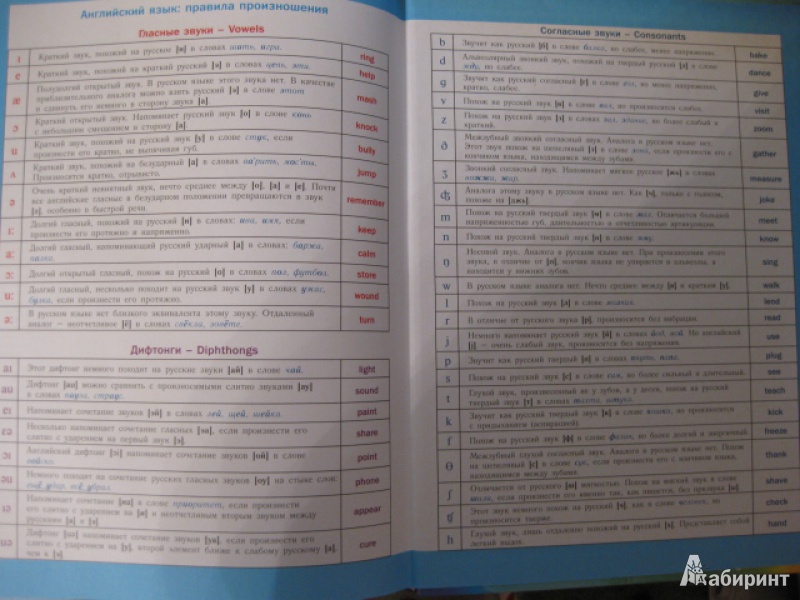 Английский язык: правила произношения
Гласные звуки – Vowels
ɪ Краткий звук, похожий на русский [и] в словах шить, игра. ring
e Краткий звук, похожий на краткий русский [э] в словах цепь, эта. help
æ Полудолгий открытый звук. В русском языке этого звука нет. В качестве
приблизительного аналога можно взять русский [э] в слове этот
и сдвинуть его немного в сторону звука [а]. mash
ɔ Краткий открытый звук. Напоминает русский звук [о] в слове
с небольшим смещением в сторону [а]. knock
Краткий звук, похожий на русский [у] в слове стук, если
произнести его кратко, не выпячивая губ. bully
Краткий звук, похожий на безударный [а] в словах
Произносится кратко, отрывисто. jump
ə Очень краткий невнятный звук, нечто среднее между [о], [а] и [е]. Почти
все английские гласные в безударном положении превращаются в звук
[ə], особенно в быстрой речи. remember
Долгий гласный, похожий на русский [и] в словах: ива, их, если
произнести его протяжно и напряженно. keep
Долгий гласный, напоминающий русский ударный [а] в словах: баржа,
calm
ɔ: Долгий открытый гласный, похож на русский [о] в словах пол, футбол. store
Долгий гласный, несколько походит на русский звук [у] в словах ужас,
булка, если произнести его протяжно. wound
В русском языке нет близкого эквивалента этому звуку. Отдаленный
аналог — неотчетливое [ё] в словах свёкла, turn
Дифтонги – Diphthongs
aɪ Этот дифтонг немного походит на русские звуки [ай] в слове чай. light
Дифтонг можно сравнить с произносимыми слитно звуками [ау]
в словах пауза, страус. sound
eɪ Напоминает сочетание звуков [эй] в словах лей, щей, шейка. paint
Несколько напоминает сочетание гласных [эа], если произнести его
слитно с ударением на первый звук [э]. share
ɔɪ Английский дифтонг [ɔɪ] напоминает сочетание звуков [ой] в слове
войско. point
Немного походит на сочетание русских гласных звуков [оу] на стыке слов:
phone
ɪə Напоминает сочетание в слове приоритет, если произнести
его слитно с ударением на [и] и неотчетливым вторым звуком между
русскими appear
Дифтонг напоминает сочетание звуков если произнести его
слитно с ударением на [у], второй элемент ближе к слабому русскому [а],
чем к [э]. cure
Согласные звуки – Consonants
b Звучит как русский [б] в слове но слабее, менее напряженно. bake
d Альвеолярный звонкий звук, похожий на твердый русский [д] в слове
но слабее. dance
g Звучит как русский согласный [г] в слове но менее напряженно,
кратко, слабее. give
v Похож на русский звук [в] в слове но произносится слабее. visit
z Похож на русский звук [з] в словах но более слабый и
краткий. zoom
ð Межзубный звонкий согласный звук. Аналога в русском языке нет.
Этот звук похож на шепелявый [з] в слове если произнести его с
кончиком языка, находящимся между зубами. gather
ʒ Звонкий согласный звук. Напоминает мягкое русское [ж] в словах
measure
Аналога этому звуку в русском языке нет. Как [ч], только с голосом,
похоже на [дж]. joke
m Похож на русский твердый звук [м] в слове Отличается большей
напряженностью губ, длительностью и отчетливостью артикуляции. meet
n Похож на русский твердый звук [н] в слове know
ŋ Носовой звук. Аналога в русском языке нет. При произнесении этого
звука, в отличие от [n], кончик языка не упирается в альвеолы, а
находится у нижних зубов. sing
w В русском языке аналога нет. Нечто среднее между [в] и кратким [у]. walk
l Похож на русский звук [л] в слове lend
r В отличие от русского звука [р], произносится без вибрации. read
j Немного напоминает русский [й] в словах йод, мой. Но английское
[j] — очень слабый звук, произносится без напряжения. use
p Звучит как русский твердый [п] в словах plug
s Похож на русский звук [с] в слове но более сильный и длительный. see
t Глухой звук, произносимый не у зубов, а у десен, похож на русский
твердый звук [т] в словах teach
k Звучит как русский твердый звук [к] в слове но произносится
с придыханием (аспирацией). kick
f Похож на русский звук [ф] в слове но более долгий и энергичный. freeze
θ Межзубный глухой согласный звук. Аналога в русском языке нет. Похож
на шепелявый [с] в слове если произнести его с кончиком языка,
находящимся между зубами. thank
ʃ Отличается от русского [ш] мягкостью. Похож на мягкий звук в слове
если произнести его именно так, как пишется, без призвука
shave
Этот звук немного похож на русский [ч], как в слове человек, но
произносится тверже. check
h Глухой звук, лишь отдаленно похожий на русский [х]. Представляет собой
легкий выдох. hand
Лабиринт